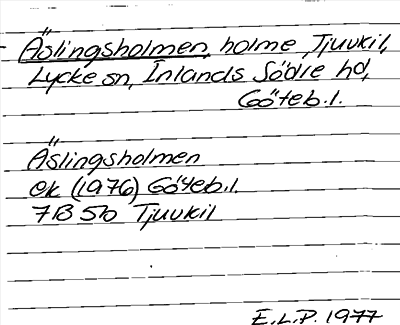 Äslingsholmen, holme, Tjuvkil,
Lycke sn, Inlands Södre hd,
Göteb.l.
Äslingsholmen
ek (1976) Göteb.l.
7B 5b Tjuvkil
E.L.P. 1977